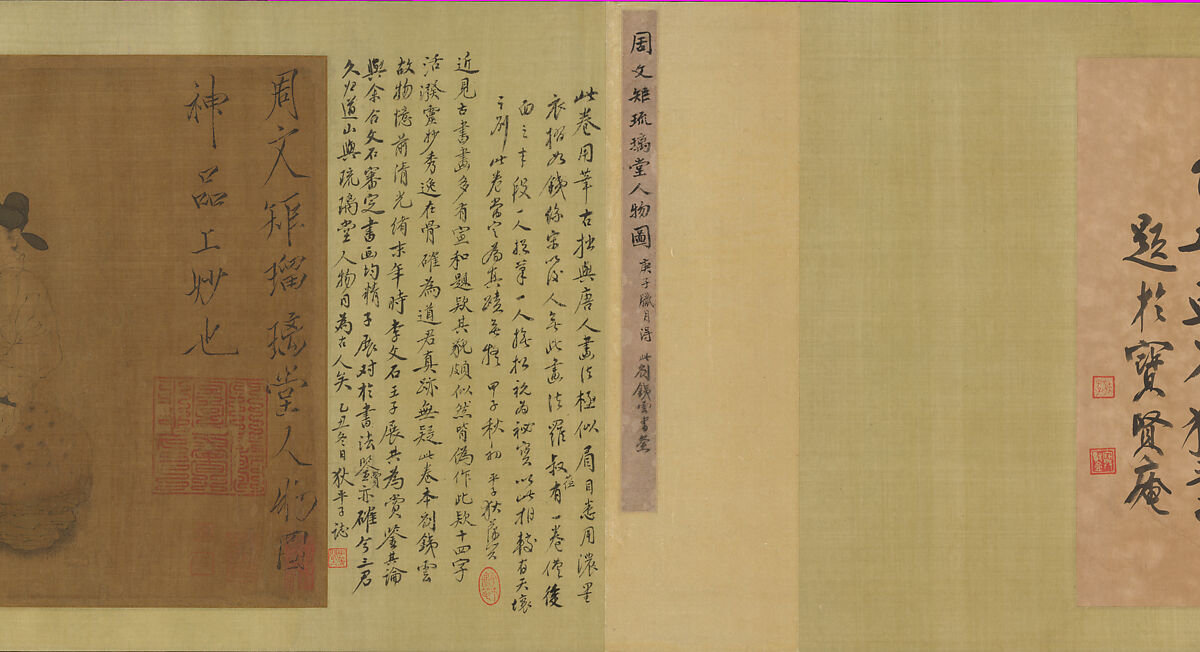 題於寶賢庵
周文矩琉璃堂人物圖 庚子臘月得 此劉鐵雲書簽
此卷用筆古拙與唐人畫法極似眉目悉用濃墨
衣褶如鐵線宋以後人無此畫法羅叔蘊有一卷僅後
面之半段一人握筆一人 祝為祕寶以此相較有天壤
之別此卷當定為真蹟無疑 甲子秋初 平子狄葆賢
近見古書畫多有宣和題款其貌頗似然皆偽作此款十四字
活潑靈妙秀逸在骨確為道君真跡無疑此卷本劉鐵雲
故物憶前清光緒末年時李文石王子展共為賞鑒其論
與余合文石審定書画均精子展對於書法鑒賞亦確今三君
久歸道山與琉璃堂人物同為古人矣 乙丑冬日狄平子誌
周文矩瑠璃堂人物圖
神品上妙也